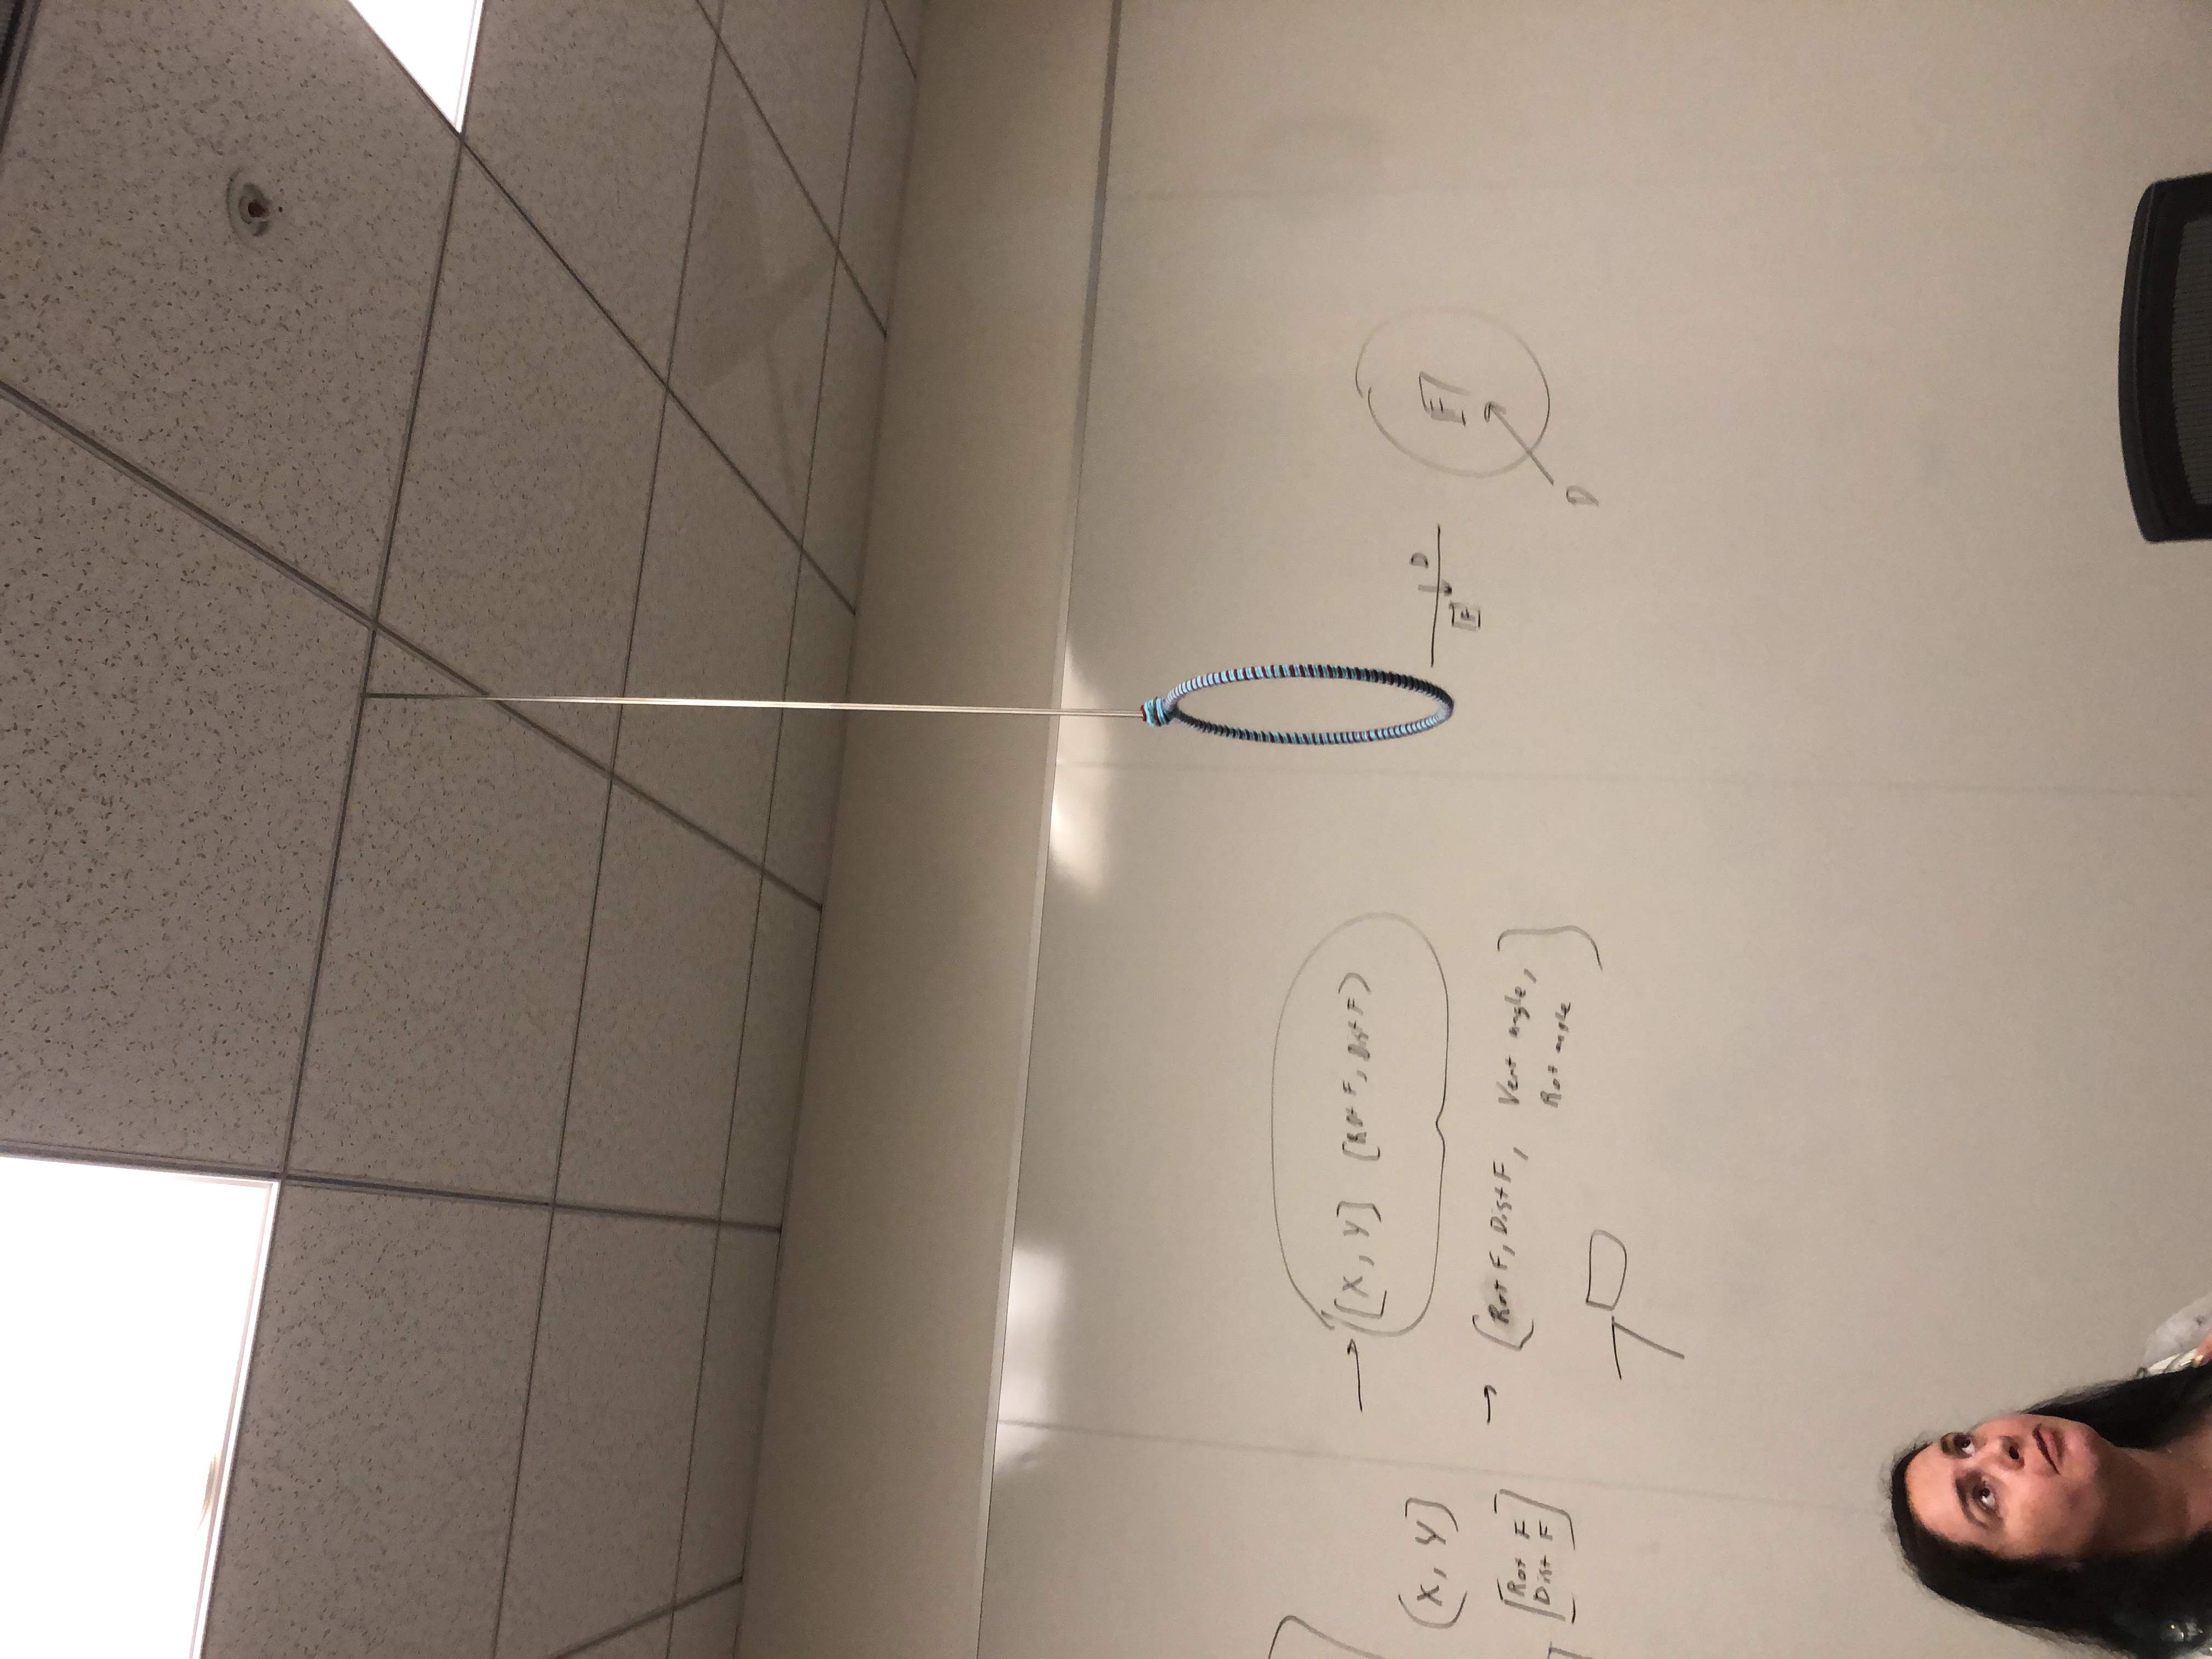 → [X, Y] [Rot F, Dist F]
(X, Y]
[Rot F
Dist F]
→ [Rot F, Dist F, Vert angle,
Rot angle]
D
F
F
D